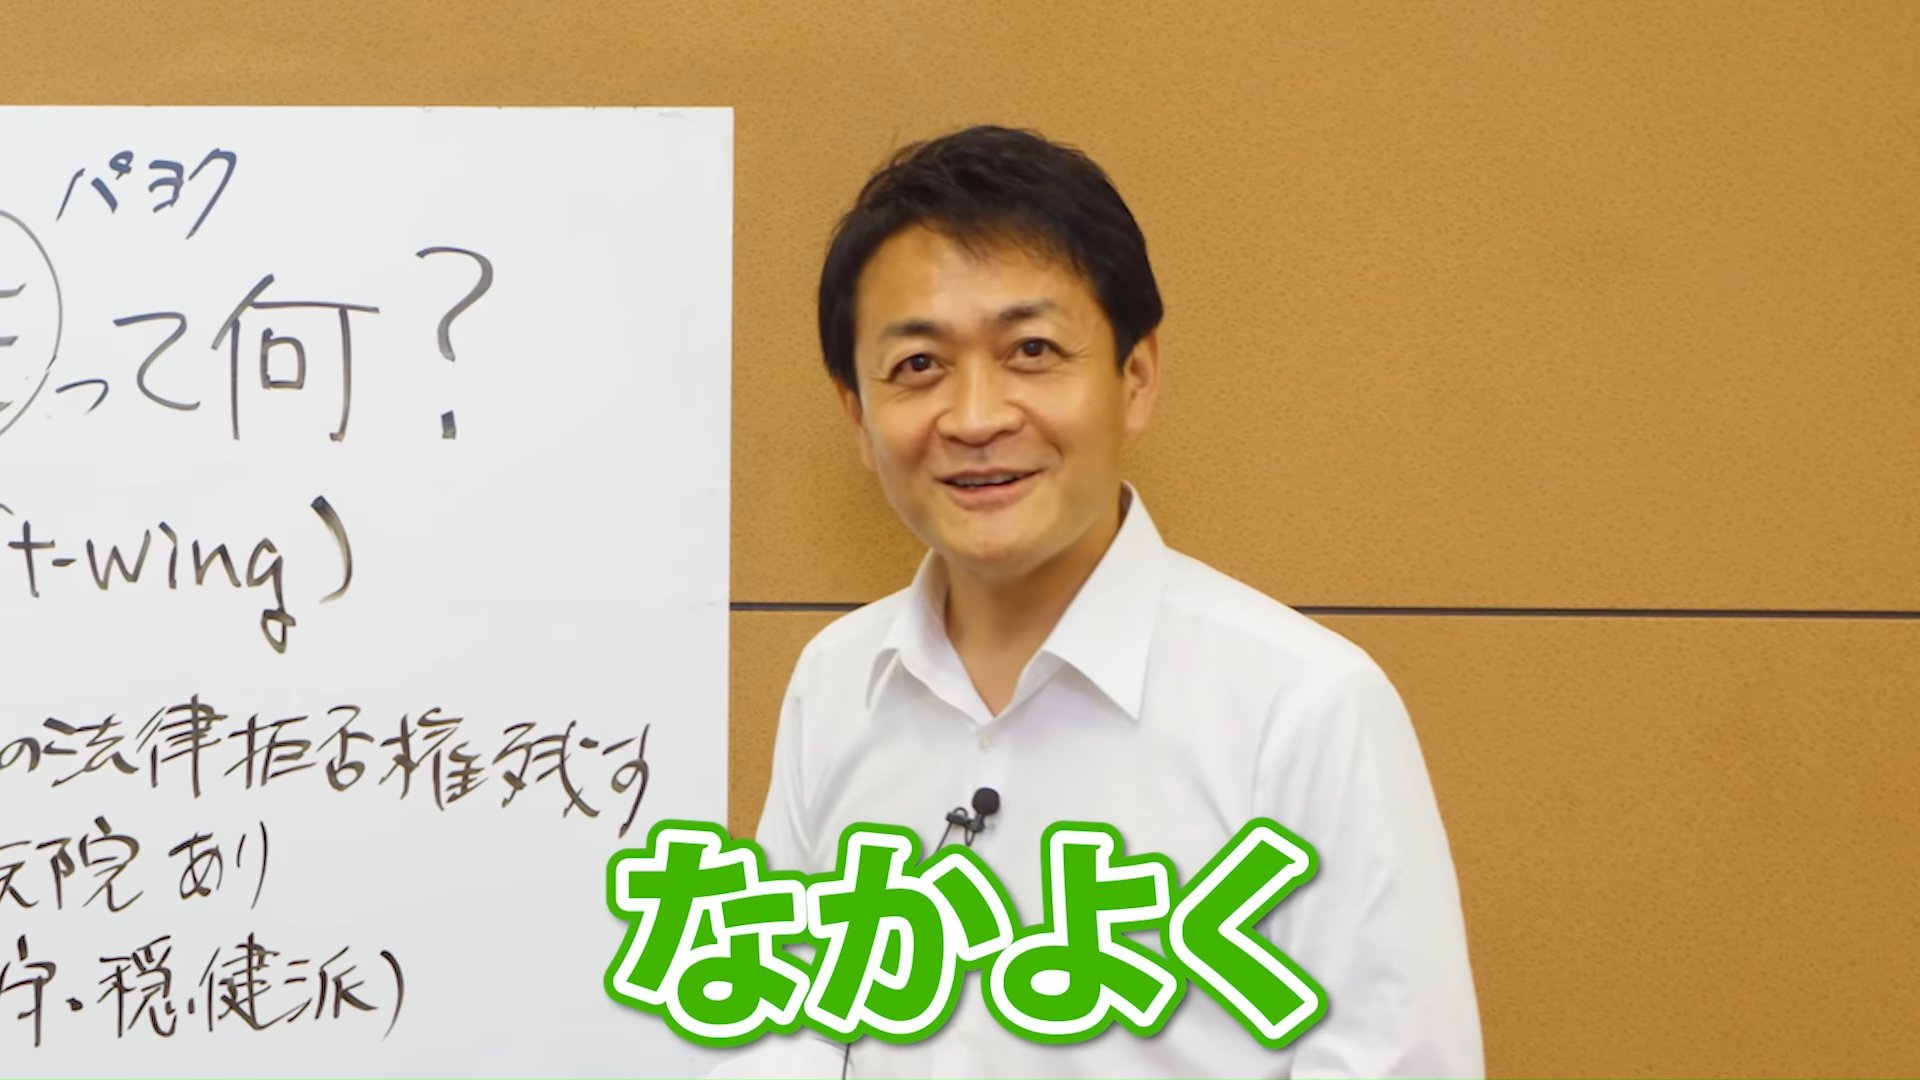 パヨク
って何?
t-wing)
の法律拒否権残す
院あり
守・穏健派)
なかよく